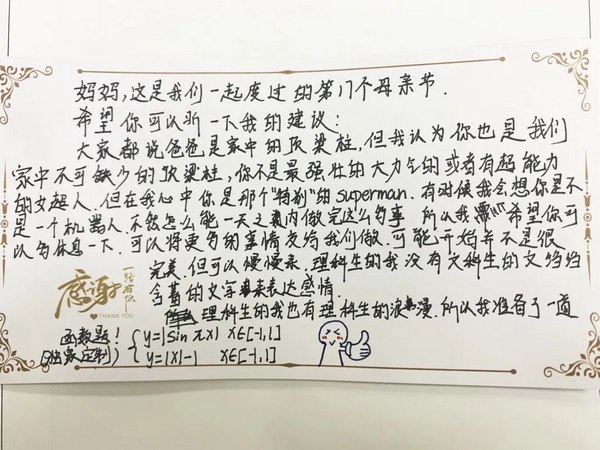 妈妈,这是我们一起度过的第17个母亲节.
希望你可以听一下我的建议:
大家都说爸爸是家中的顶梁柱,但我认为你也是我们
家中不可缺少的顶梁柱,你不是最强壮的大力气的或者有超能力
的女超人.但在我心中你是那个"特别"的superman.有时候我会想你是不
是一个机器人.不然怎么能一天之内做完这么多事 所以我希望你可
以多休息一下.可以将更多的事情交给我们做.可能开始并不是很
完美,但可以慢慢来.理科生的我没有文科生的文绉绉
含蓄的文字来表达感情.
理科生的我也有理科生的浪漫.所以我准备了一道
函数题! { y=|sin πx| x∈[-1,1]
(独家定制) y=|x|-1 x∈[-1,1]
感谢
一路有你
THANK YOU